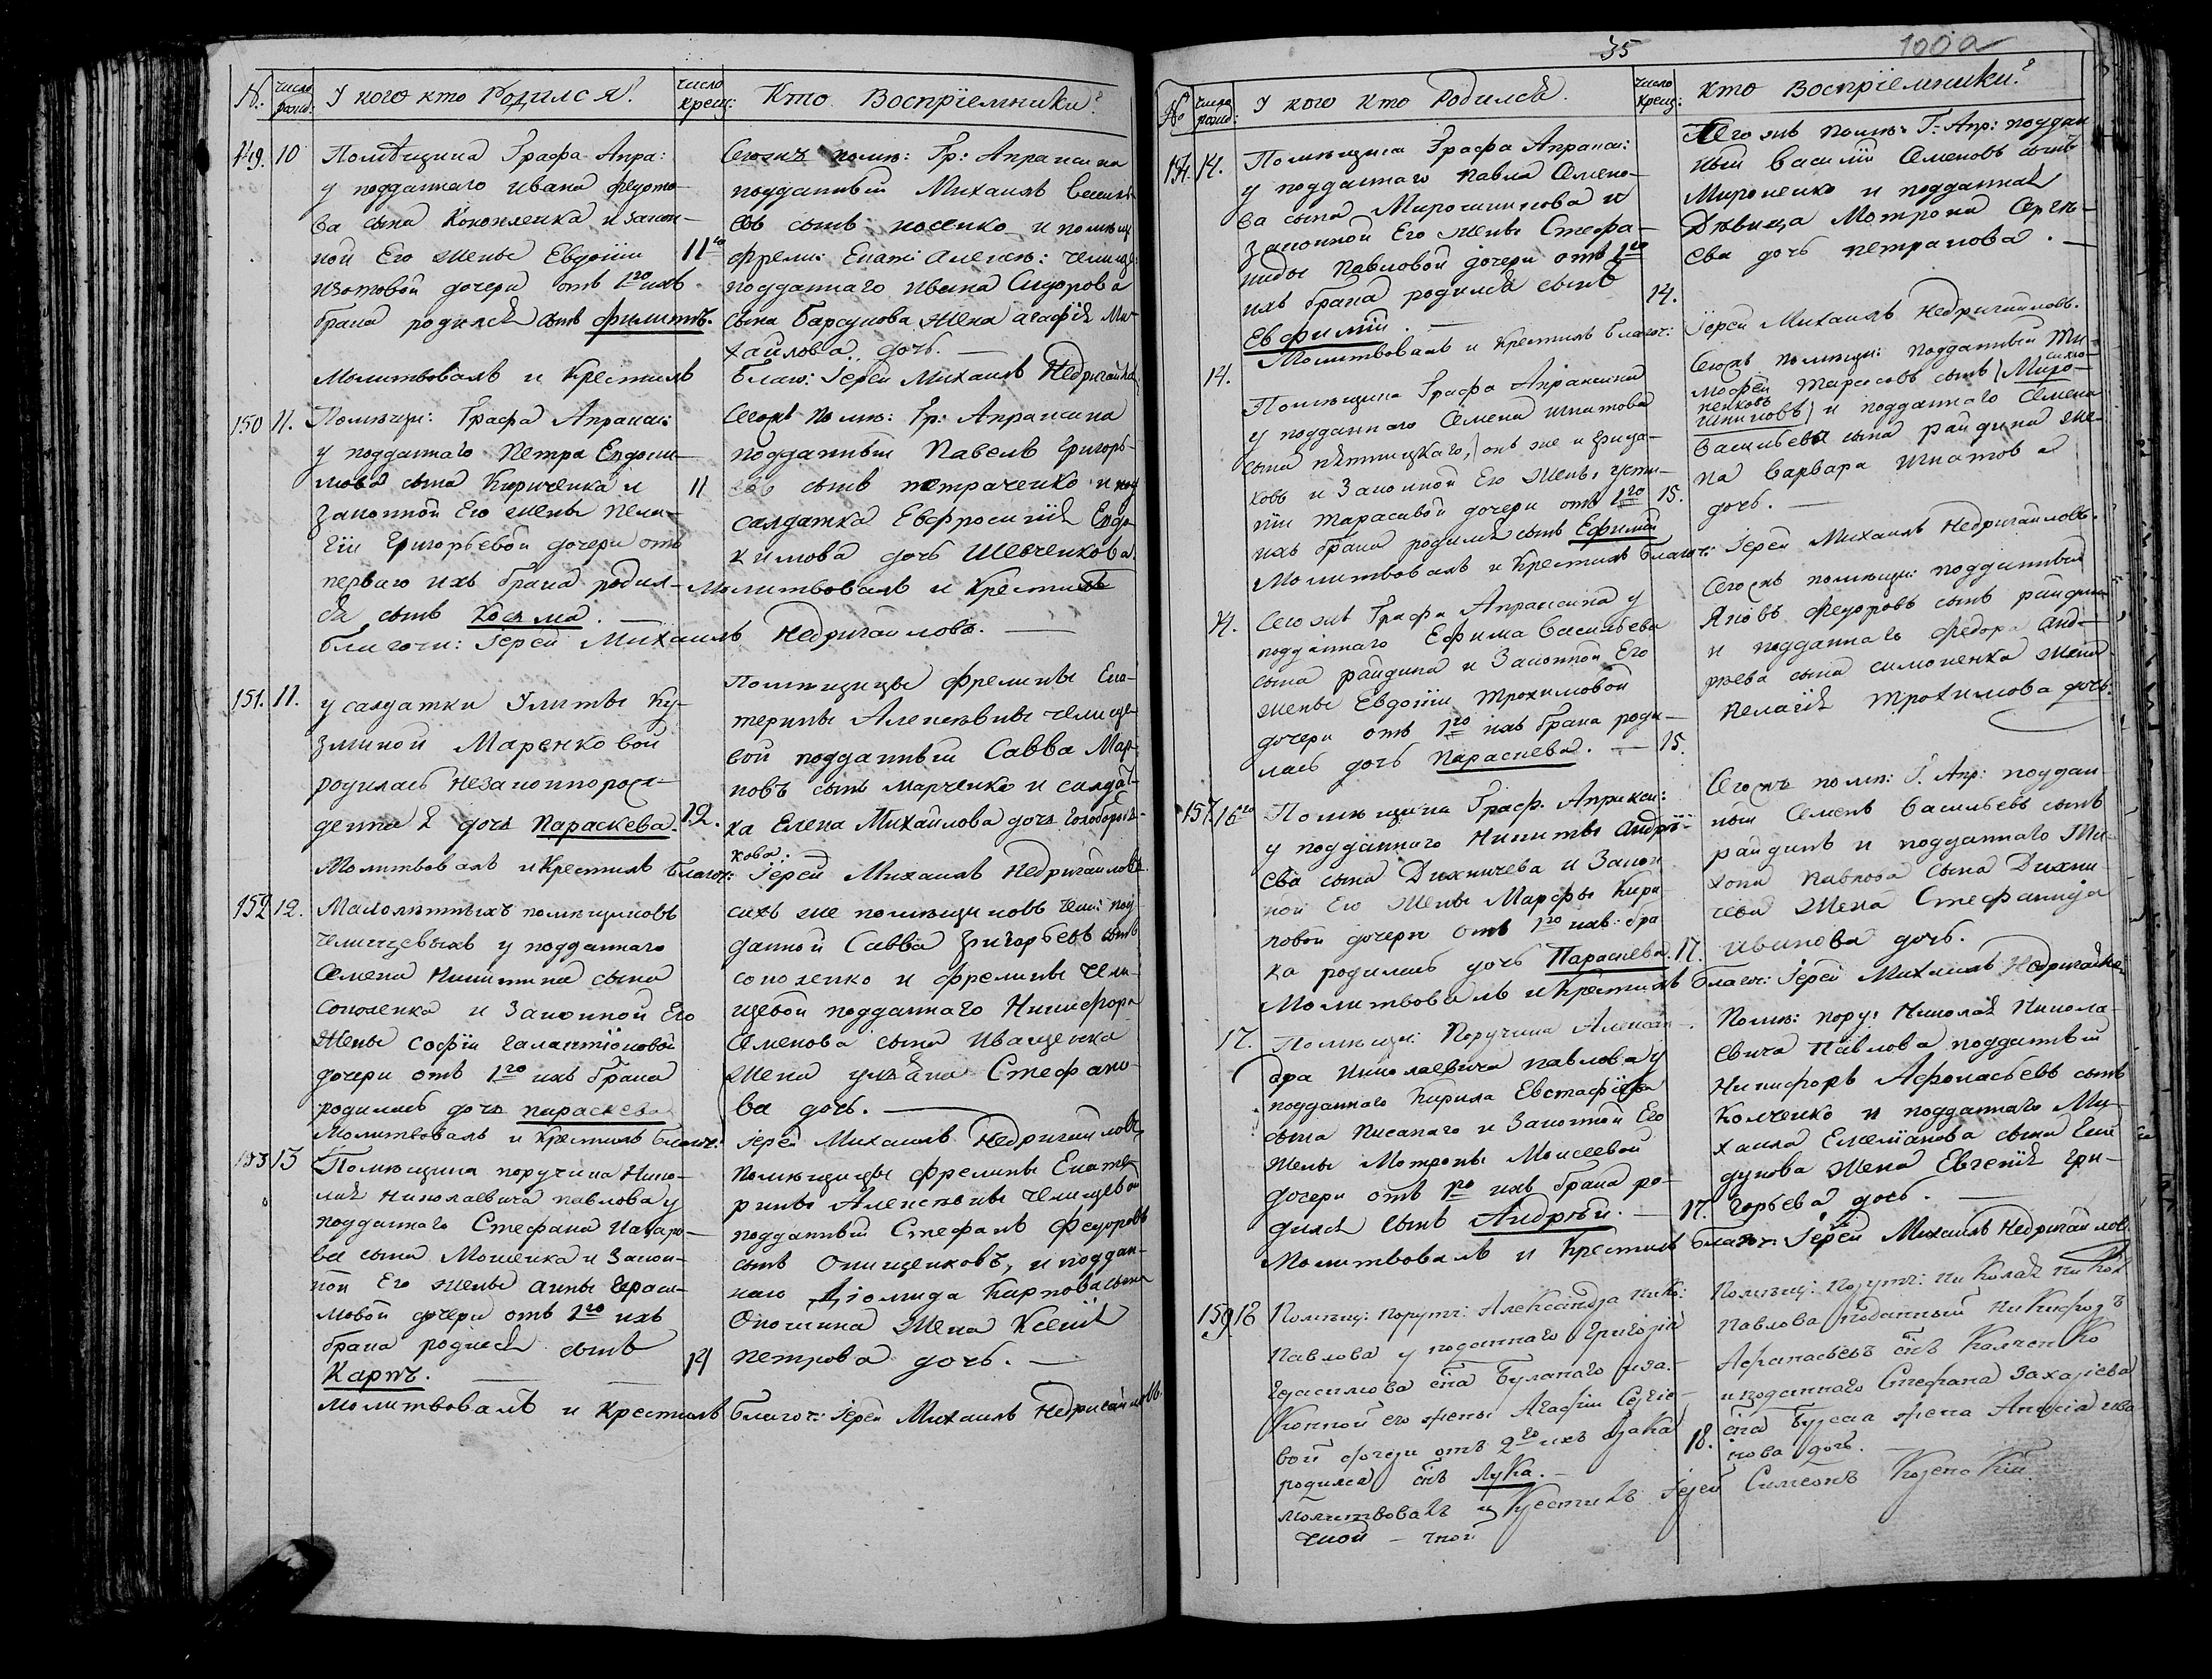 №: число рожд: У кого кто Родился? число крещ: Кто Восприемники?
149. 10 Помѣщика Графа Апра:
у подданнаго Ивана Федото-
ва сына Кононленка и закон-
ной Его жены Евдокіи
Изотовой дочери отъ 1го ихъ
брака родился сынъ Филиппъ.
11го
Сегожъ помѣ: Гр: Апраксина
подданный Михаилъ Василь
евъ сынъ Носенко и помѣщ
фрелин: Екат: Алексѣ: Челище:
подданнаго Ивана Сидорова
сына Барсукова жена Агафія Ми-
хайлова дочь.
Молитвовалъ и Крестилъ Благоч: Іерей Михаилъ Недригайлов
150 11. Помѣщи: Графа Апракси:
у подданнаго Петра Евдоки-
мова сына Кириченка и
законной Его жены Пела-
гіи Григорьевой дочери отъ
перваго ихъ брака родил-
ся сынъ Косьма.
11
Сегожъ помѣ: Гр: Апраксина
подданный Павелъ Григорь-
евъ сынъ Петраченко и
салдатка Евфросинія Евдо-
кимова дочь Шевченкова.
Молитвовалъ и Крестилъ
благочи: Іерей Михаилъ Недригайловъ.
151. 11. у салдатки Улиты Ку-
зминой Маренковой
родилась незаконнорож-
денная дочь Параскева.
12.
Помѣщицы фрелины Ека-
терины Алексѣевны Челище-
вой подданный Савва Мар-
ковъ сынъ Марченко и салдат-
ка Елена Михайлова дочь Голобород-
кова.
Молитвовалъ и Крестилъ Благоч: Іерей Михаилъ Недригайловъ
152 12. Малолѣтныхъ помѣщиковъ
Челищевыхъ у подданнаго
Семена Никитина сына
Соколенка и Законной Его
Жены Софіи Галактіоновой
дочери отъ 1го ихъ брака
родилась дочь Параскева
сихъ же помѣщиковъ Чели: под-
данной Савва Григорьевъ сынъ
Соколенко и фрелины Чели-
щевой подданнаго Никифора
Семенова сына Иващенка
жена Ульяна Стефано-
ва дочь.
Молитвовалъ и Крестилъ Благоч: Іерей Михаилъ Недригайловъ
153 13 Помѣщика поручика Нико-
лая Николаевича Павлова у
подданнаго Стефана Назаро-
ва сына Мошенка и Закон-
ной Его жены Анны Гераси-
мовой дочери отъ 2го ихъ
брака родился сынъ
Карпъ.
14
Помѣщицы фрелины Екате-
рины Алексѣевны Челищевой
подданный Стефанъ Федоровъ
сынъ Онищенковъ, и поддан-
наго Діомида Карпова сына
Опошина жена Ксенія
Петрова дочь.
Молитвовалъ и Крестилъ Благоч: Іерей Михаилъ Недригайловъ.
35 100а
№ число рожд: У кого кто Родился. число Крещ: Кто Восприемники?
154. 14. Помѣщика Графа Апракси:
у подданнаго Павла Семено-
ва сына Мирошникова и
законной Его жены Стефа-
ниды Павловой дочери отъ 1го
ихъ брака родился сынъ
Евфимій.
14.
Тогожъ помѣ: Г: Апр: поддан
ный Василій Семеновъ сынъ
Мироненко и подданная
Дѣвица Мотрона Сергѣ-
ева дочь Петракова.
Молитвовалъ и Крестилъ благоч: Іерей Михаилъ Недригайловъ.
14. Помѣщика Графа Апраксина
у подданнаго Семена Игнатова
сына Пѣтницкаго, онъ же и Грица-
ковъ и Законной Его жены Усти-
ніи Тарасивой дочери отъ 1го
ихъ брака родился сынъ Ефимій
15.
Сегожъ помѣщи: подданный Ти-
мофей Тарасовъ сынъ (Миро-
ненковъ
и подданнаго Семена
Васильева сына Райдина же-
на Варвара Игнатова
дочь.
Молитвовалъ и Крестилъ Благоч: Іерей Михаилъ Недригайловъ.
14. Сегожъ Графа Апраксина у
подданнаго Ефима Васильева
сына Райдина и Законной Его
жены Евдокіи Трохимовой
дочери отъ 1го ихъ брака роди-
лась дочь Параскева.
15.
Сегожъ помѣщи: подданный
Яковъ Федоровъ сынъ Райдин
и подданнаго Федора Анд-
рѣева сына Симоненка жена
Пелагія Трохимова дочь.
157. 16го Помѣщика Граф. Апракси:
у подданнаго Никиты Андрѣ-
ева сына Дихничева и Закон
ной Его Жены Марфы Кири-
ловой дочери отъ 1го ихъ бра
ка родилась дочь Параскева.
17.
Сегожъ помѣ: Г. Апр: поддан
ный Семенъ Васильевъ сынъ
Райдинъ и подданнаго Ти-
хона Павлова сына Дихни-
чева жена Стефанида
Иванова дочь.
Молитвовалъ и Крестилъ Благоч: Іерей Михаилъ Недригайлов
17. Помѣщи: Поручика Алексан-
дра Николаевича Павлова у
подданнаго Кирила Евстафіева
сына Писанаго и Законной Его
жены Мотроны Моисеевой
дочери отъ 1го ихъ брака ро-
дился сынъ Андрѣй.
17.
Помѣ: пору: Николая Никола-
евича Павлова подданный
Никифоръ Афонасьевъ сынъ
Колченко и подданнаго Ми-
хаила Емельянова сына
дунова жена Евгенія Гри-
горьева дочь.
Молитвовалъ и Крестилъ Благоч: Іерей Михаилъ Недригайлов
159 18 Помѣщ: Поруч: Александра Ник:
Павлова у подданнаго Григорія
Герасимова сна Буланаго и за-
конной его жены Агафіи Сергіе-
вой дочери отъ 2го ихъ брака
родился снъ Лука.
18.
Помѣщ: Поруч: Николая Никол
Павлова поданный Никифоръ
Афанасьевъ снъ Колченко
и поданнаго Стефана Захаріева
сна Бурсаа жена Анисіа Ива
нова дочь.
молитвовалъ и Крестилъ Іерей Симеонъ